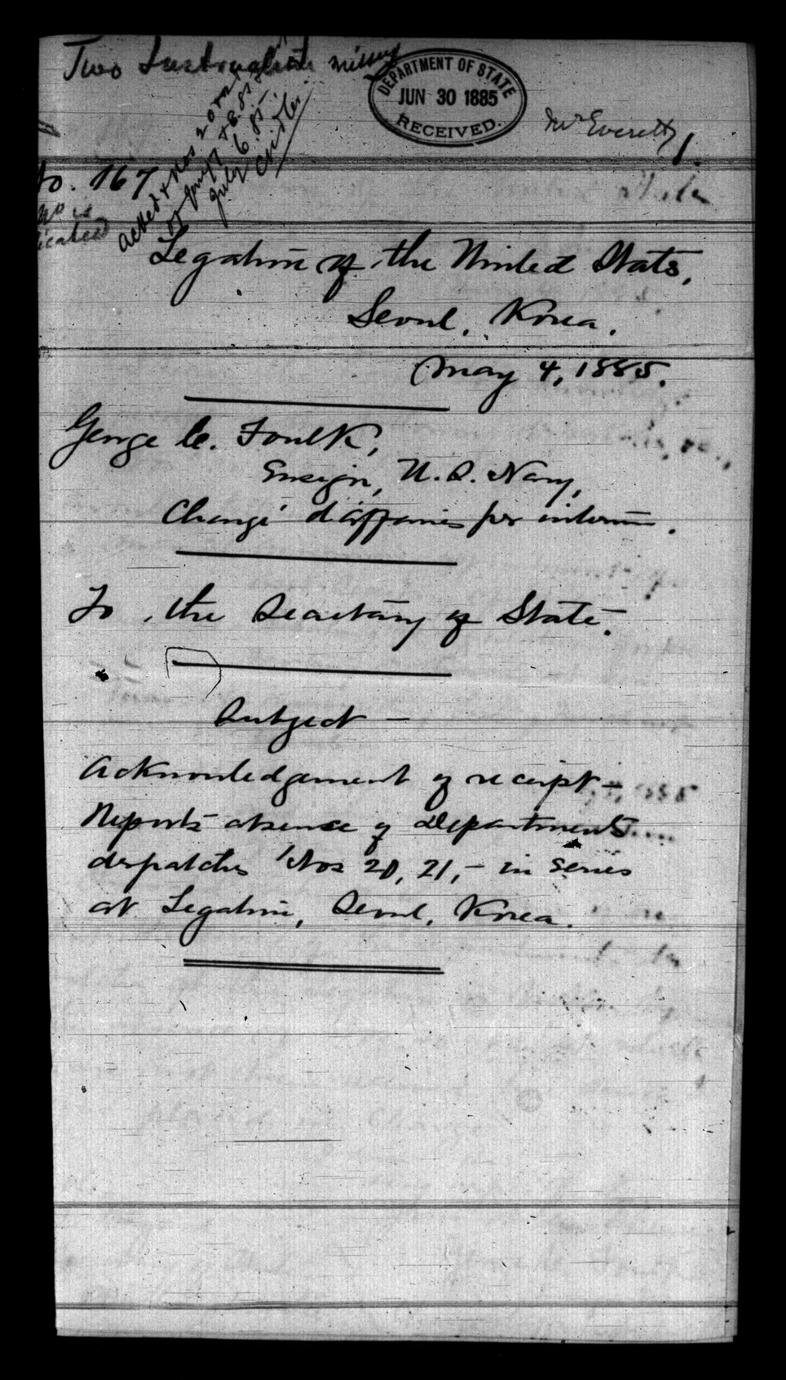 Two Instructions missing
DEPARTMENT OF STATE
JUN 30 1885
RECEIVED.
Mr Everett
1.
No. 167
no is
Ack'd & Nos 20 &
of Jany 1885
July 6. 85.
Legation of the United States,
Seoul, Korea.
May 4, 1885.
George C. Foulk,
Ensign, U.S. Navy,
Chargé d'affaires per interim.
To the Secretary of State.
Subject —
Acknowledgement of receipt —
Reports absence of Department's
despatches Nos 20, 21, — in series
at Legation, Seoul, Korea.